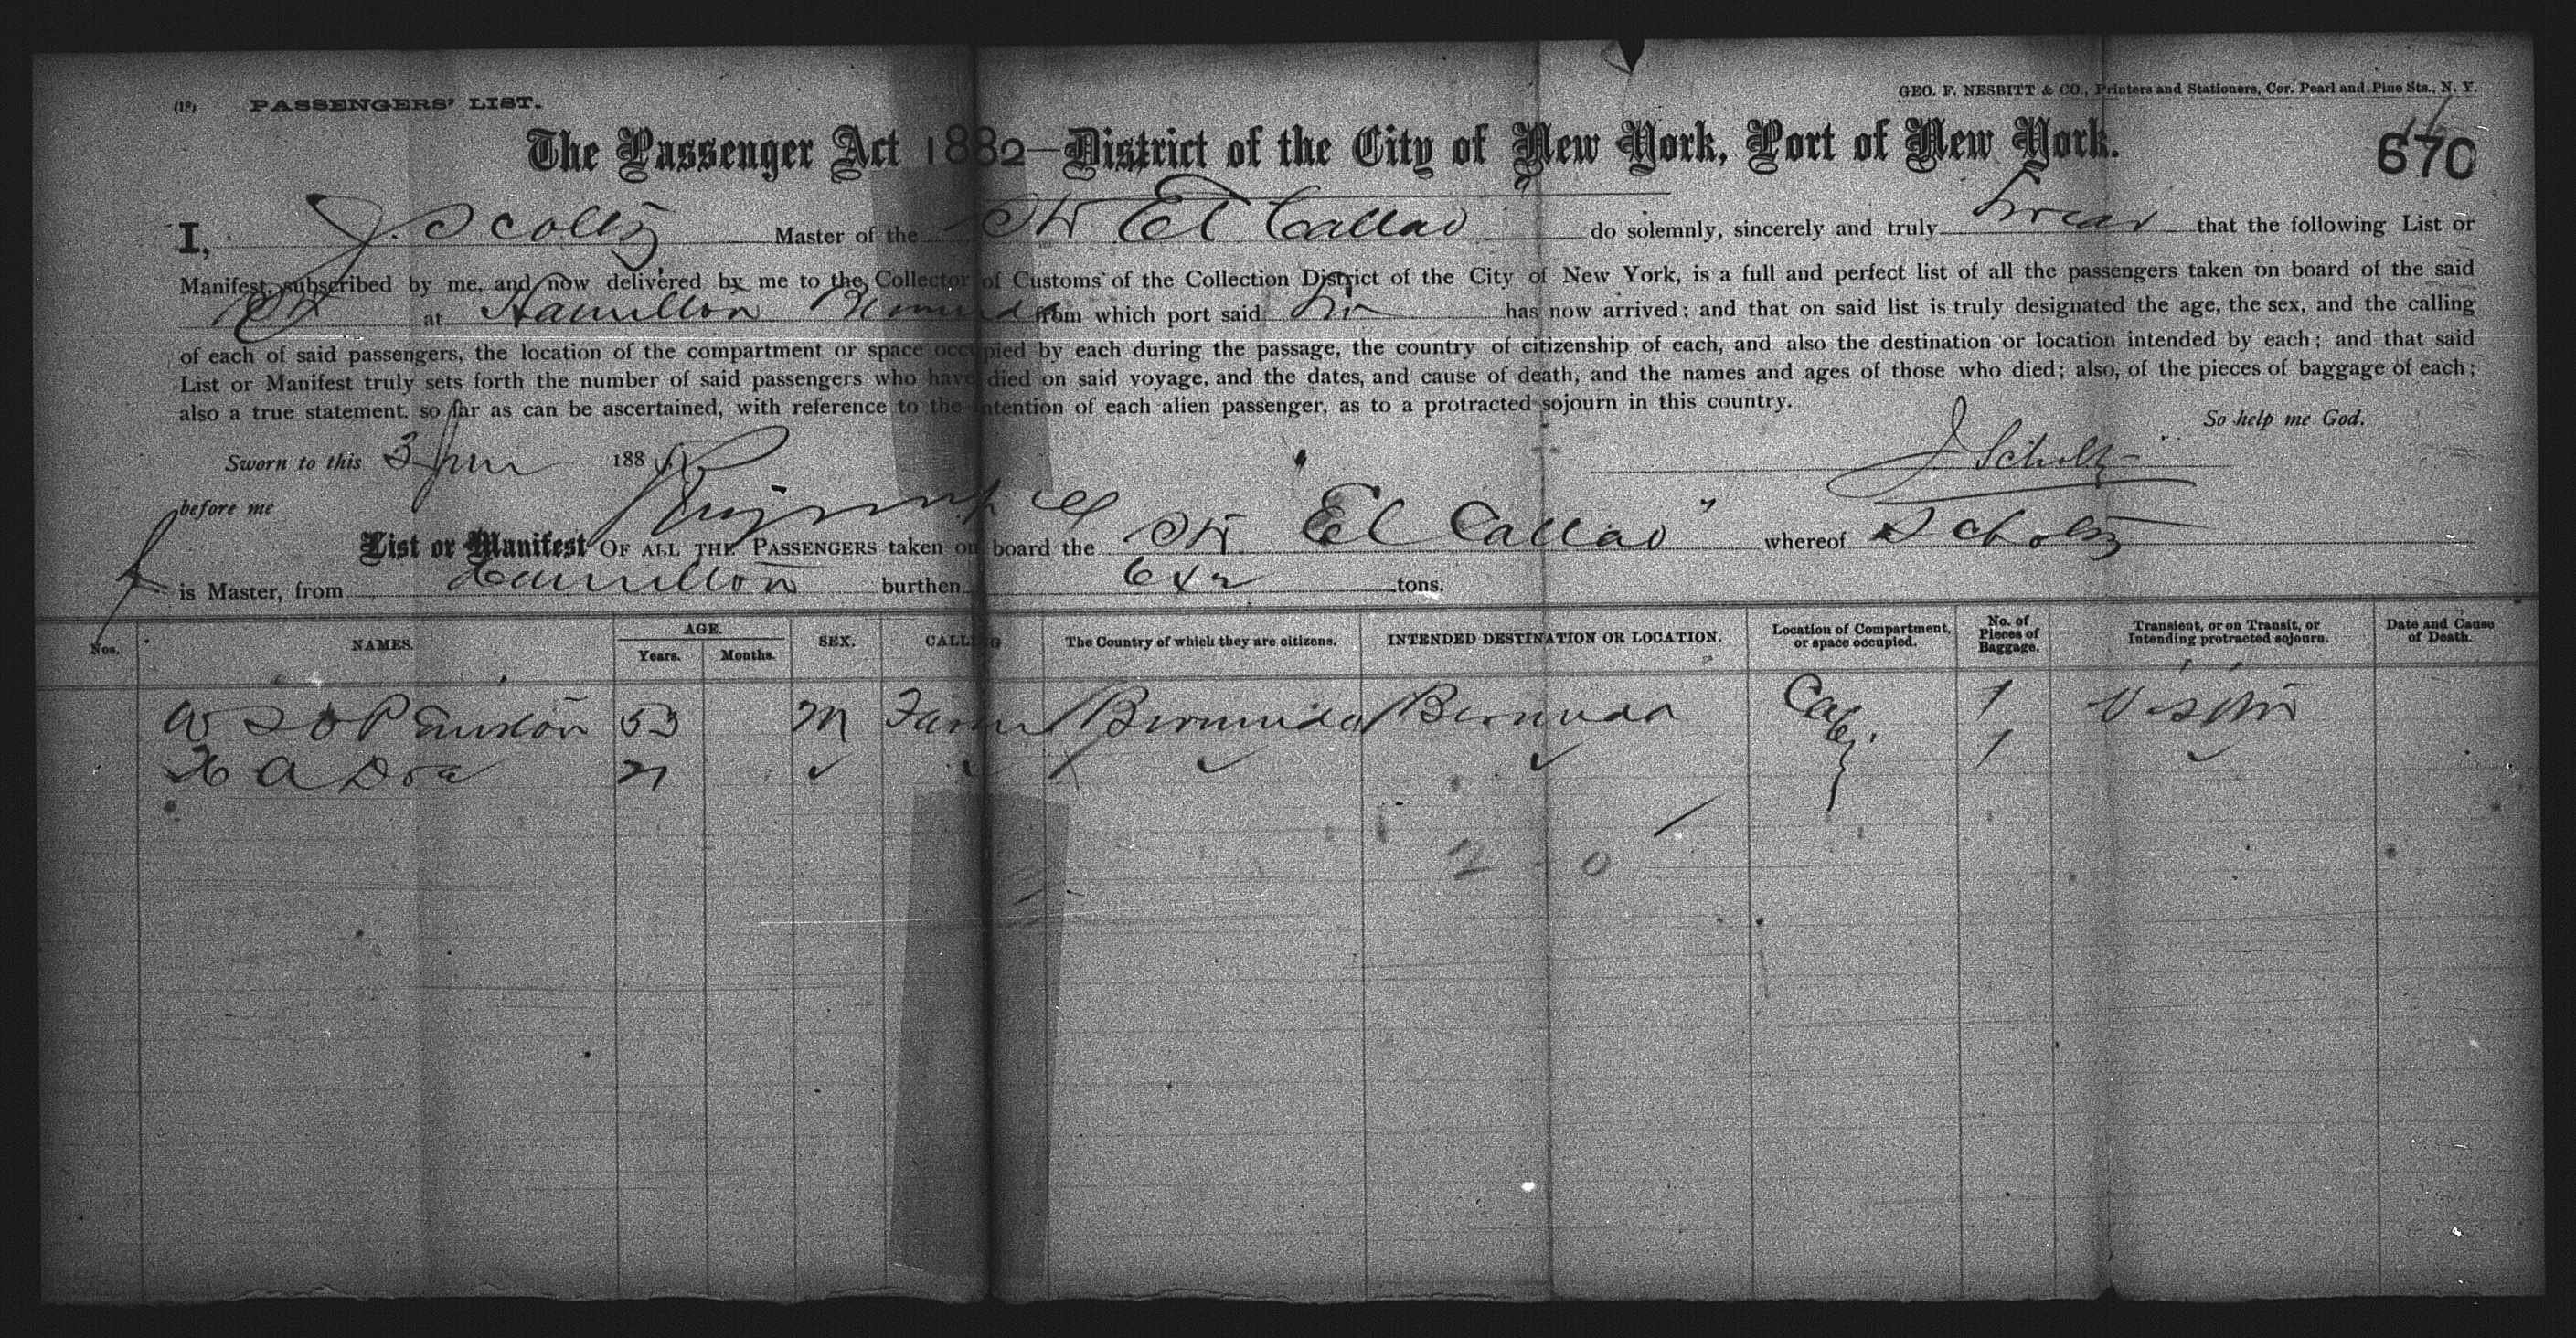 (18) PASSENGERS' LIST.
GEO. F. NESBITT & CO., Printers and Stationers, Cor. Pearl and Pine Sts., N. Y.
The Passenger Act 1882—District of the City of New York, Port of New York.
670
I, J. Scoltz Master of the Str El Callao do solemnly, sincerely and truly Swear that the following List or
Manifest, subscribed by me, and now delivered by me to the Collector of Customs of the Collection District of the City of New York, is a full and perfect list of all the passengers taken on board of the said
Str at Hamilton Bermuda from which port said Str has now arrived: and that on said list is truly designated the age, the sex, and the calling
of each of said passengers, the location of the compartment or space occupied by each during the passage, the country of citizenship of each, and also the destination or location intended by each; and that said
List or Manifest truly sets forth the number of said passengers who have died on said voyage, and the dates, and cause of death, and the names and ages of those who died; also, of the pieces of baggage of each;
also a true statement, so far as can be ascertained, with reference to the intention of each alien passenger, as to a protracted sojourn in this country.
So help me God.
Sworn to this 3 June 188
J Scholtz
before me
List or Manifest OF ALL THE PASSENGERS taken on board the Str "El Callao" whereof Scholtz
is Master, from Hamilton burthen tons.
Nos. NAMES. AGE. Years. Months. SEX. CALLING The Country of which they are citizens. INTENDED DESTINATION OR LOCATION. Location of Compartment, or space occupied. No. of Pieces of Baggage. Transient, or on Transit, or Intending protracted sojourn. Date and Cause of Death.
W S 53 M Farmer Bermuda Bermuda Cab. 1 Visitor
A 21 ✓ ✓ ✓ ✓ 1 ✓
2 - 0